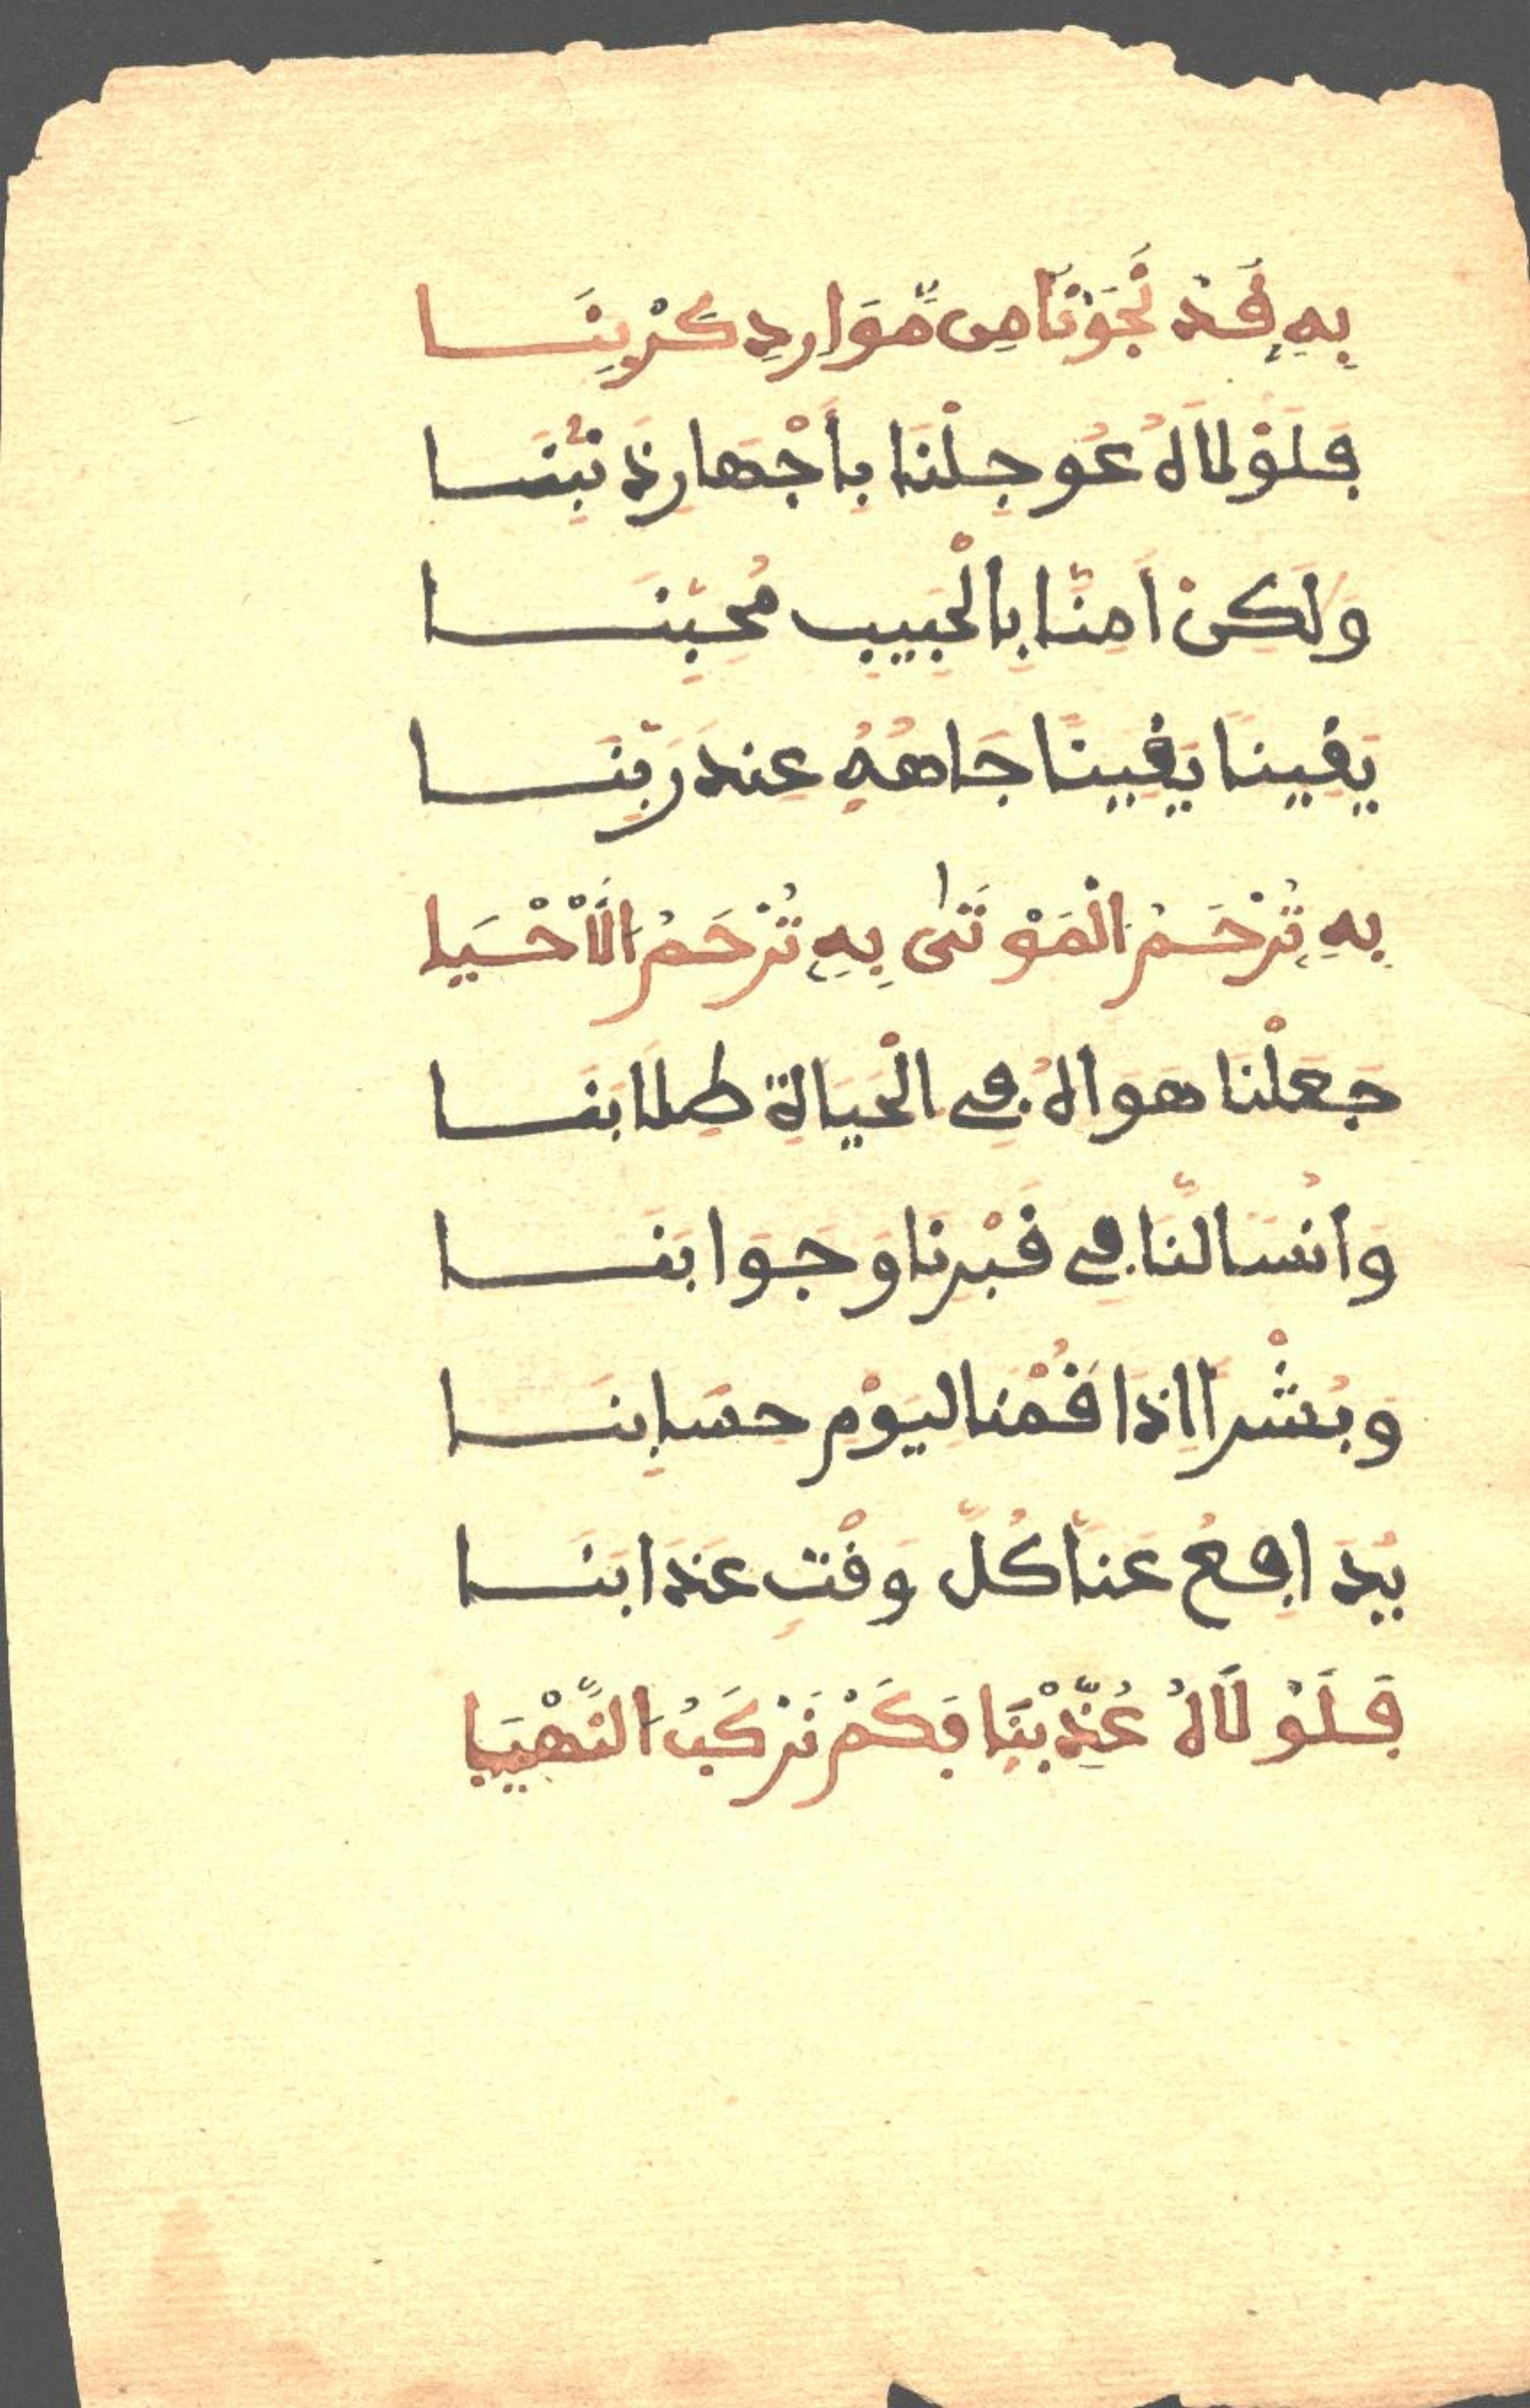 بِهِ فَدْ نَّجَوْنَا مِن مَّوَارِدِ كَرْبِنَا
فَلَوْلَاهُ عُوجِلْنَا بِأَجْهَارِ ذَنْبِنَا
وَلَكِنْ اَمِنَّا بِالْحَبِيبِ مُحِبِّنَا
يَفِينًا يَفِينًا جَاهُهُ عِندَ رَبِّنَا
بِهِ تُرْحَمُ الْمَوْتَىٰ بِهِ تُرْحَمُ الَاحْيَا
جَعَلْنَا هَوَاهُ فِي الْحَيَاةِ طِلَابَنَا
وَأُنْسًا لَّنَا فِي فَبْرِنَا وَجَوَابَنَا
وَبُشْرَا إِذَا فُمْنَا لِيَوْمِ حِسَابِنَا
يُدَافِعُ عَنَّا كُلَّ وَفْتٍ عَذَابَنَا
فَلَوْلَاهُ عُذِّبْنَا فَكَمْ نَرْكَبُ النَّهْيَا